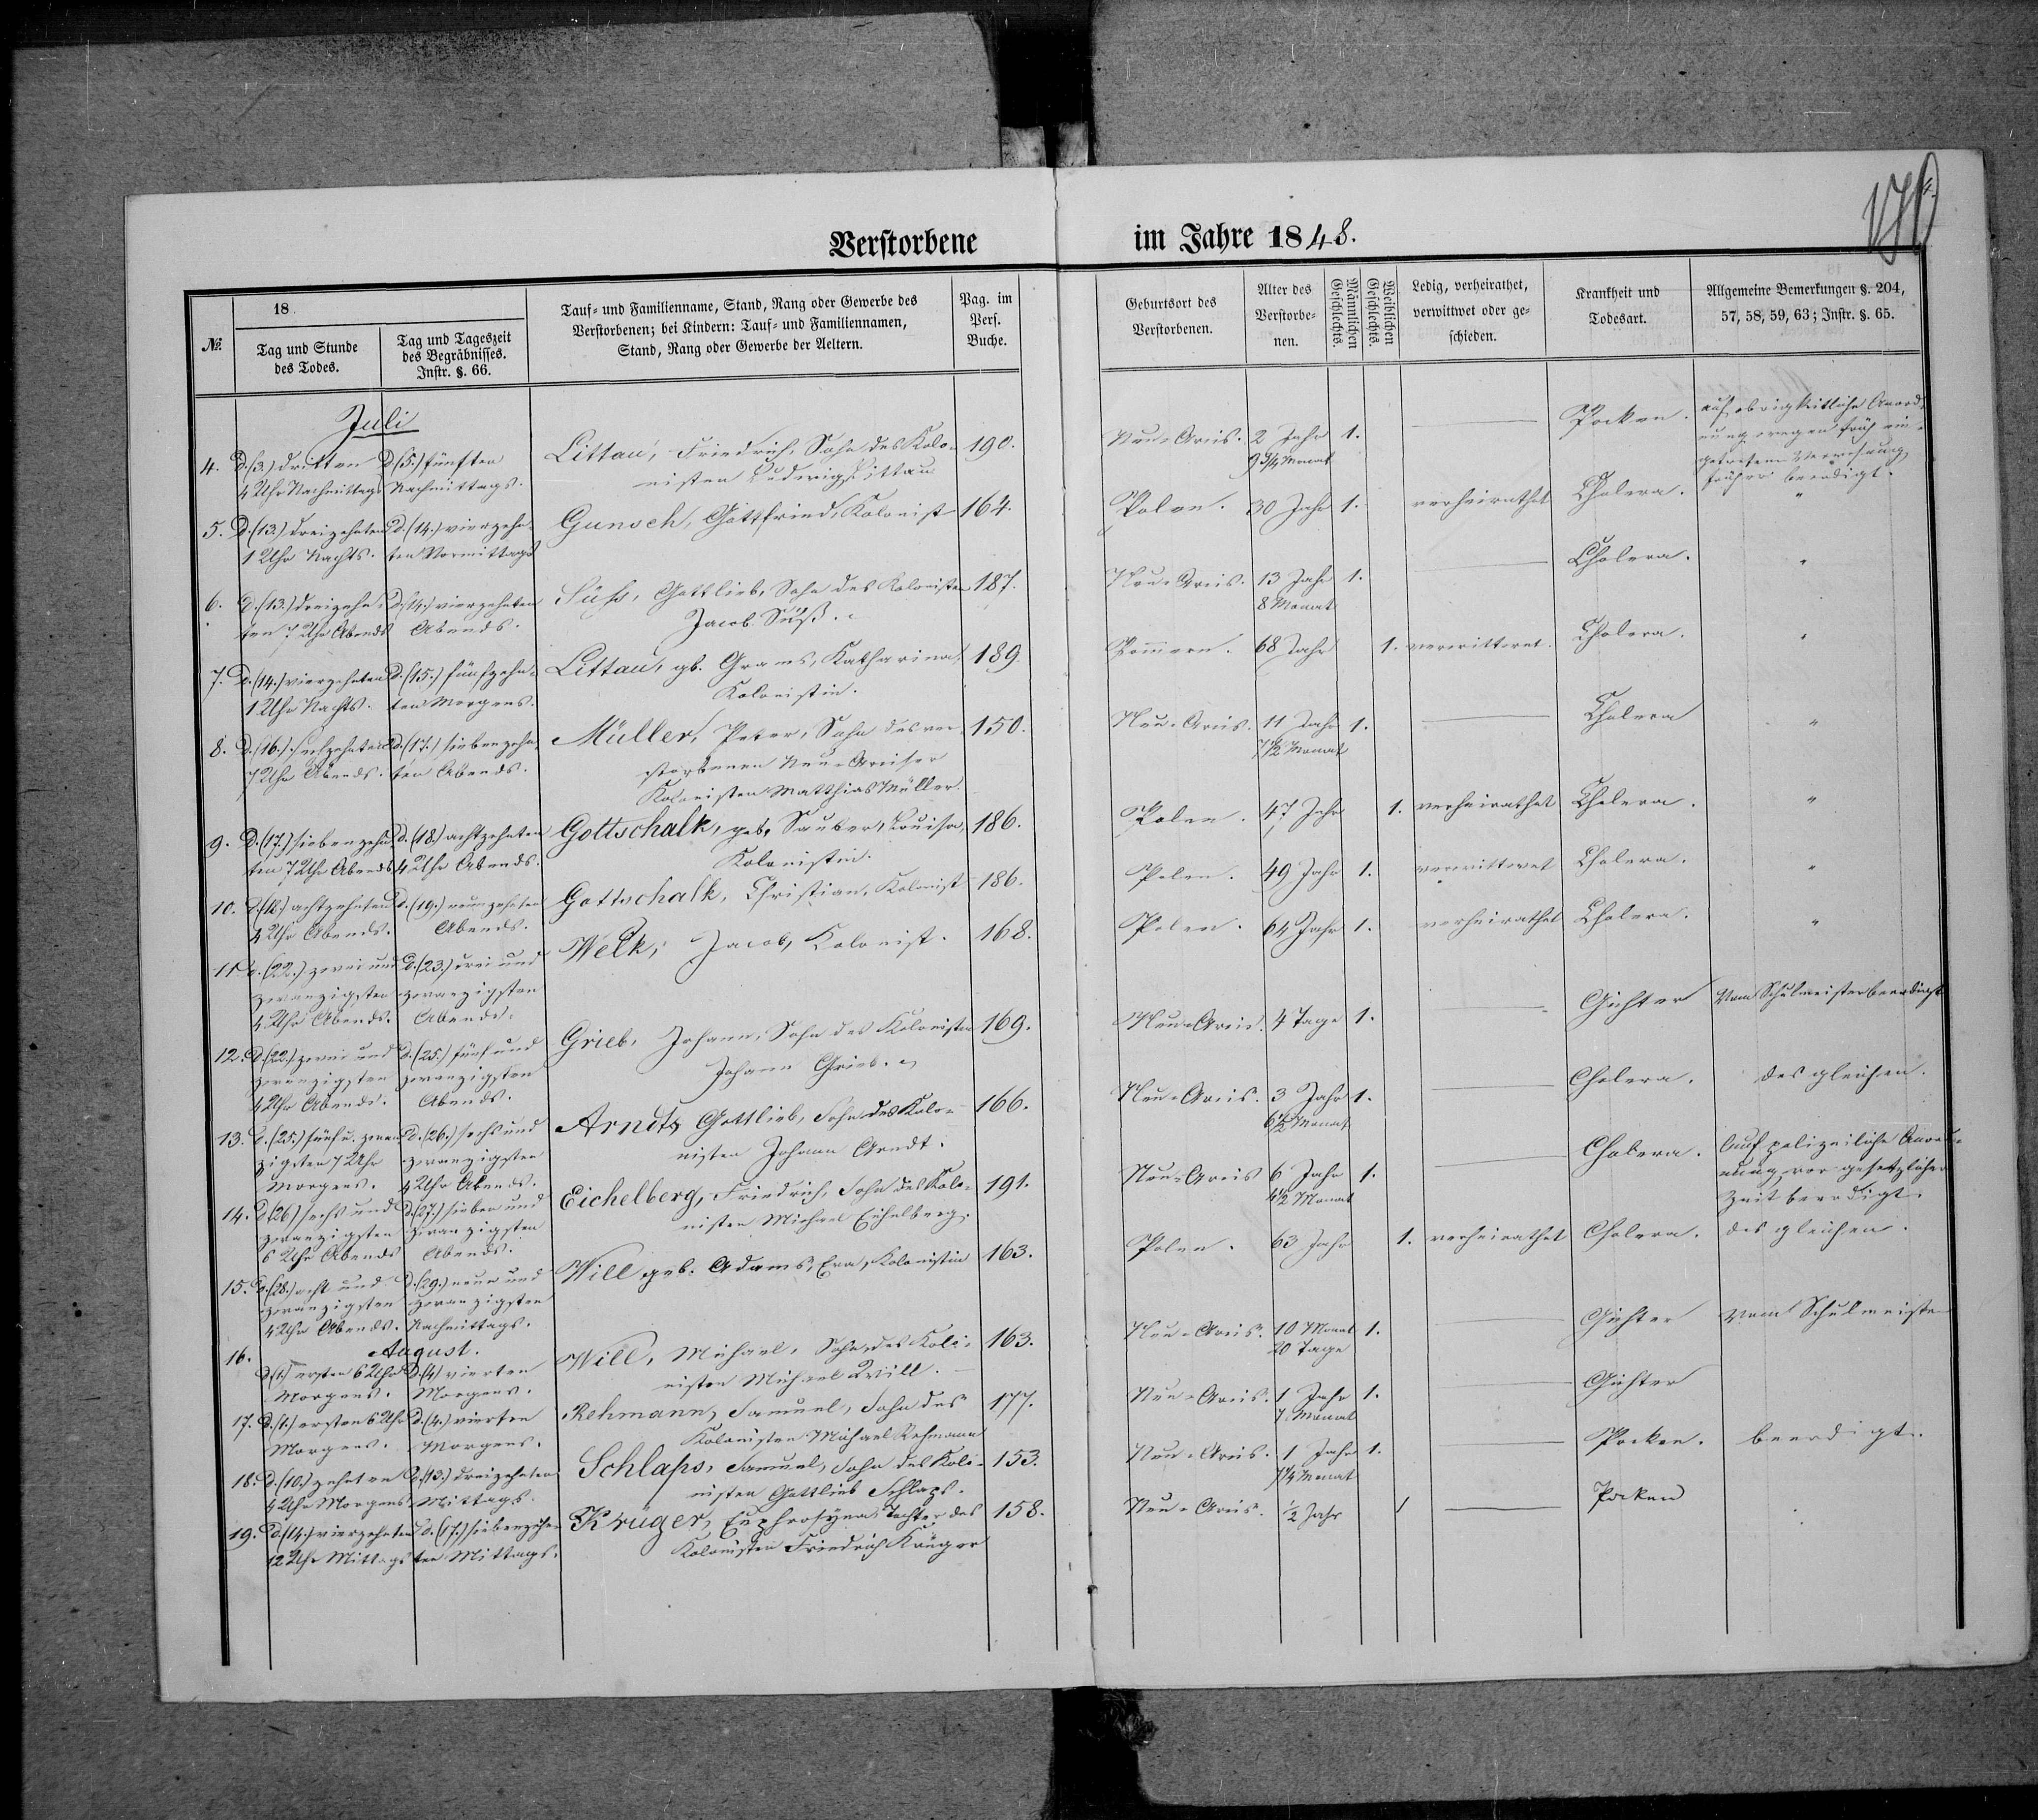 Verstorbene im Jahre 1848.
№.
18
Tag und Stunde
des Todes.
Tag und Tageszeit
des Begräbnisses.
Instr. §. 66.
Tauf- und Familienname, Stand, Rang oder Gewerbe des
Verstorbenen; bei Kindern: Tauf- und Familiennamen,
Stand, Rang oder Gewerbe der Aeltern.
Pag. im
Pers.
Buche.
Geburtsort des
Verstorbenen.
Alter des
Verstorbe-
nen.
Männlichen
Geschlechts.
Weiblichen
Geschlechts.
Ledig, verheirathet,
verwittwet oder ge-
schieden.
Krankheit und
Todesart.
Allgemeine Bemerkungen §. 204,
57, 58, 59, 63; Instr. §. 65.
Juli
4. D. (3.) dritten D. (5.) fünften Littau, Friedrich, Sohn des Kolo- 190. Neu-Arcis. 2 Jahr 1. Pocken. auf obrigkeitliche Anord-
4 Uhr Nachmittags Nachmittags. nisten Ludwig Littau 9 3/4 Monat nung wegen früh ein-
getretene Verwesung
früher beerdigt.
5. D. (13.) dreizehnten D. (14.) vierzehn- Gunsch, Gottfried, Kolonist 164. Polen. 30 Jahr 1. verheirathet Cholera. "
1 Uhr Nachts. ten Vormittags
6. D. (13.) dreizehn- D. (14.) vierzehnten Süß, Gottlieb, Sohn des Kolonisten 187. Neu-Arcis. 13 Jahr 1. Cholera. "
ten 7 Uhr Abends Abends. Jacob Süß. 8 Monat
7. D. (14.) vierzehnten D. (15.) fünfzehn- Littau, gb. Grams, Katharina, 189. Pommern. 68 Jahr 1. verwittwet. Cholera. "
1 Uhr Nachts. ten Morgens. Kolonistin.
8. D. (16.) sechzehnten D. (17.) siebenzehn- Müller, Peter, Sohn des ver- 150. Neu-Arcis. 11 Jahr 1. Cholera "
7 Uhr Abends. ten Abends. storbenen Neu-Arciser 7 1/2 Monat
Kolonisten Matthias Müller.
9. D. (17.) siebenzehn- D. (18.) achtzehnten Gottschalk, geb. Sauber, Louisa, 186. Polen. 47 Jahr 1. verheirathet Cholera. "
ten 7 Uhr Abends 4 Uhr Abends. Kolonistin.
10. D. (18.) achtzehnten D. (19.) neunzehnten Gottschalk, Christian, Kolonist 186. Polen. 49 Jahr 1. verwittwet Cholera. "
4 Uhr Abends. Abends.
11. D. (22.) zwei und D. (23.) drei und Welk, Jacob, Kolonist. 168. Polen. 64 Jahr 1. verheirathet Cholera. "
zwanzigsten zwanzigsten
4 Uhr Abends. Abends.
12. D. (22.) zwei und D. (25.) fünf und Grieb, Johann, Sohn des Kolonisten 169. Neu-Arcis. 4 Tage 1. Gichter Vom Schulmeister beerdigt
zwanzigsten zwanzigsten Johann Grieb.
4 Uhr Abends. Abends.
13. D. (25.) fünf u. zwan- D. (26.) sechs und Arndt, Gottlieb, Sohn des Kolo- 166. Neu-Arcis. 3 Jahr 1. Cholera. des gleichen.
zigsten 7 Uhr zwanzigsten nisten Johann Arndt. 6 1/2 Monat
Morgens. 4 Uhr Abends.
14. D. (26.) sechs und D. (27.) sieben und Eichelberg, Friedrich, Sohn des Kolo- 191. Neu-Arcis 6 Jahr 1. Cholera. Auf polizeiliche Anord-
zwanzigsten zwanzigsten nisten Michael Eichelberg. 4 1/2 Monat nung vor gesetzlicher
6 Uhr Abends Abends. Zeit beerdigt.
15. D. (28.) acht und D. (29.) neun und Will geb. Adams, Eva, Kolonistin 163. Polen. 63 Jahr 1. verheirathet Cholera. des gleichen.
zwanzigsten zwanzigsten
4 Uhr Abends. Nachmittags.
August.
16. D. (1.) ersten 6 Uhr D. (4.) vierten Will, Michael, Sohn des Kolo- 163. Neu-Arcis. 10 Monat 1. Gichter Vom Schulmeister
Morgens. Morgens. nisten Michael Will. 20 Tage
17. D. (1.) ersten 6 Uhr D. (4.) vierten Rehmann, Samuel, Sohn des 177. Neu-Arcis. 1 Jahr 1. Gichter
Morgens. Morgens. Kolonisten Michael Rehmann 7 Monat
18. D. (10.) zehnten D. (13.) dreizehnten Schlaps, Samuel, Sohn des Kolo- 153. Neu-Arcis. 1 Jahr 1. Pocken. beerdigt.
4 Uhr Morgens Mittags. nisten Gottlieb Schlaps. 7 1/4 Monat
19. D. (14.) vierzehnten D. (17.) siebenzehn- Krüger, Euphrosyna, Tochter des 158. Neu-Arcis. 1/2 Jahr 1 Pocken
12 Uhr Mittags ten Mittags. Kolonisten Friedrich Krüger